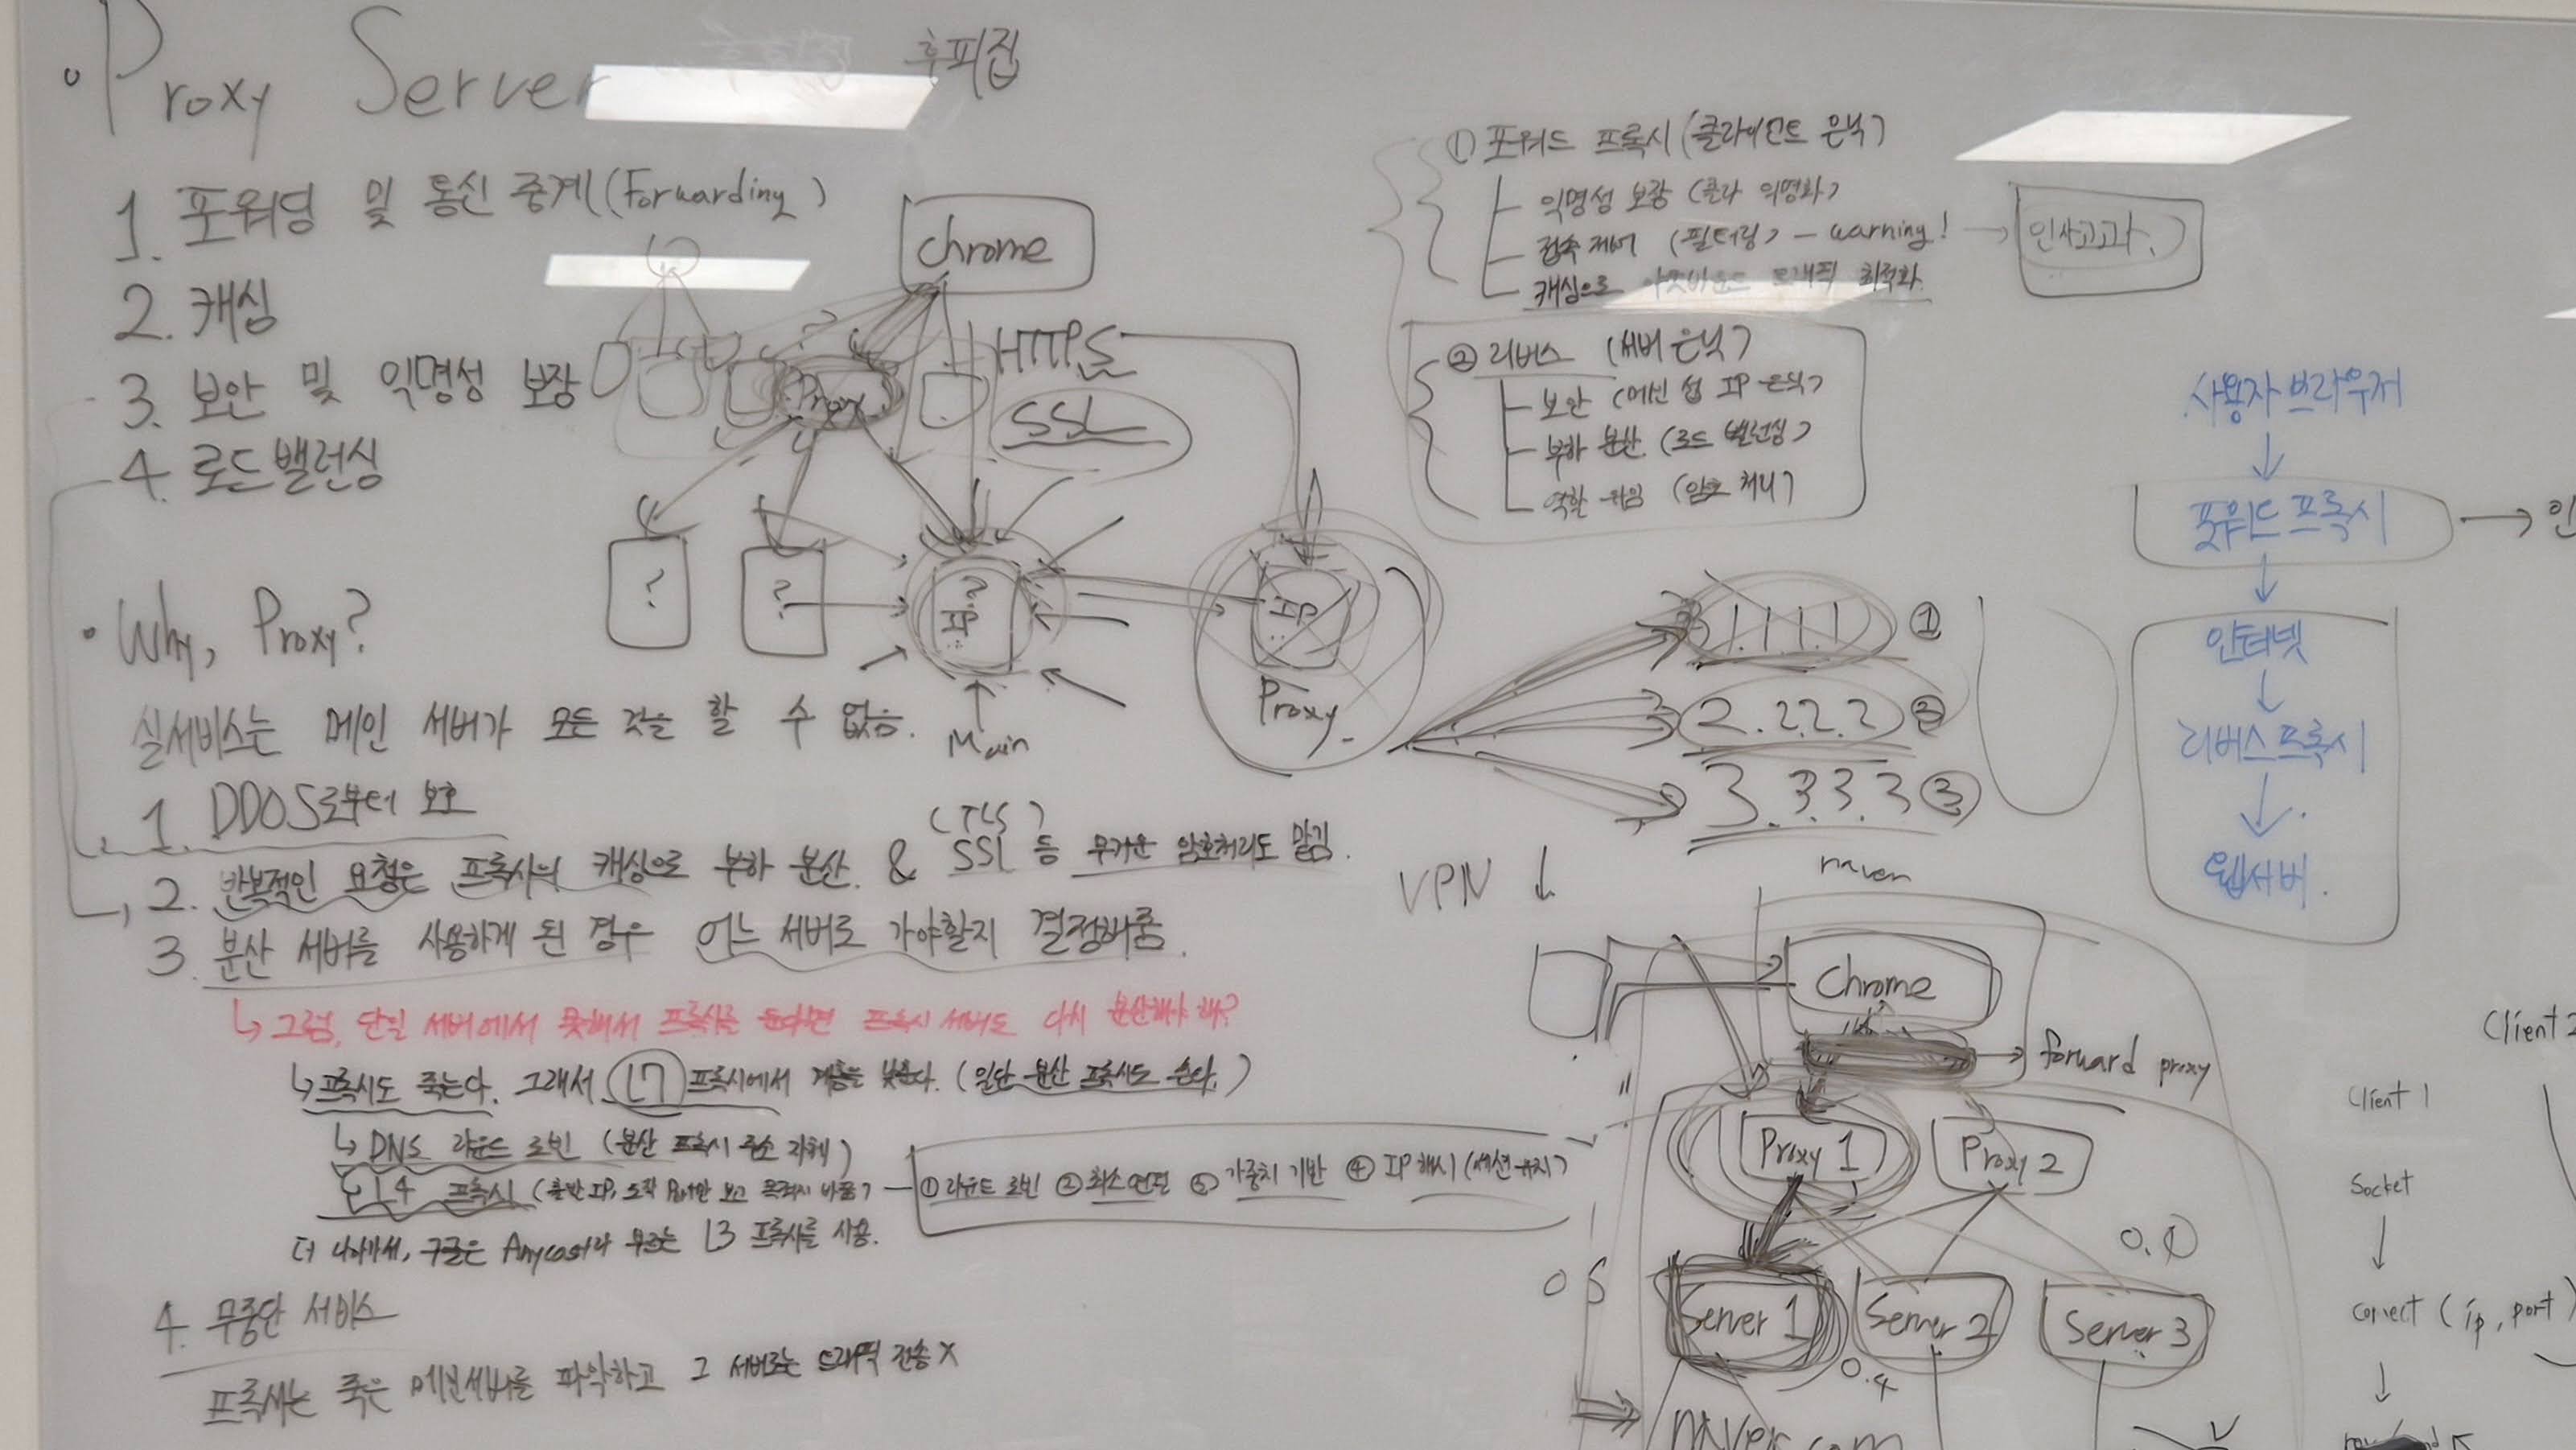 · Proxy Server
후피집
1. 포워딩 및 통신 중계 (Forwarding)
2. 캐싱
3. 보안 및 익명성 보장
4. 로드밸런싱
chrome
Proxy
HTTPS
SSL
?
?
?
IP
Main
IP
Proxy
· Why, Proxy?
실서비스는 메인 서버가 모든 것을 할 수 없음.
1. DDOS로부터 보호
2. 반복적인 요청은 프록시의 캐싱으로 부하 분산. & SSL (TLS) 등 무거운 암호처리도 맡김.
3. 분산 서버를 사용하게 된 경우 어느 서버로 가야할지 결정해줌.
↳ 그럼, 단일 서버에서 못해서 프록시를 둔다면 프록시 서버도 다시 분산해야 해?
↳ 프록시도 죽는다. 그래서 L7 프록시에서 계층을 낮춘다. (일단 분산 프록시도 쓴다.)
↳ DNS 라운드 로빈 (분산 프록시 주소 자체)
L4 프록시
① 라운드 로빈 ② 최소 연결 ③ 가중치 기반 ④ IP 해시 (세션 유지)
더 나아가서, 구글은 Anycast나 부르는 L3 프록시를 사용.
4. 무중단 서비스
프록시는 죽은 메인서버를 파악하고 그 서버로는 트래픽 전송 X
① 포워드 프록시 (클라이언트 은닉)
익명성 보장 (클라 익명화)
접속 제어 (필터링) - warning! → 인사고과.
캐싱으로 아웃바운드 트래픽 최적화
② 리버스 (서버 은닉)
보안 (메인 섭 IP 은닉)
부하 분산 (로드 밸런싱)
역할 위임 (암호 처리)
1.1.1.1 ①
2.2.2.2 ②
3.3.3.3 ③
naver
VPN ↓
Chrome
→ forward proxy
Proxy 1
Proxy 2
0.1
Server 1
Server 2
Server 3
0.4
OS
naver.com
사용자 브라우저
↓
포워드 프록시 → 인
↓
인터넷
↓
리버스 프록시
↓
웹서버.
Client 2
Client 1
Socket
↓
connect (ip, port)
↓